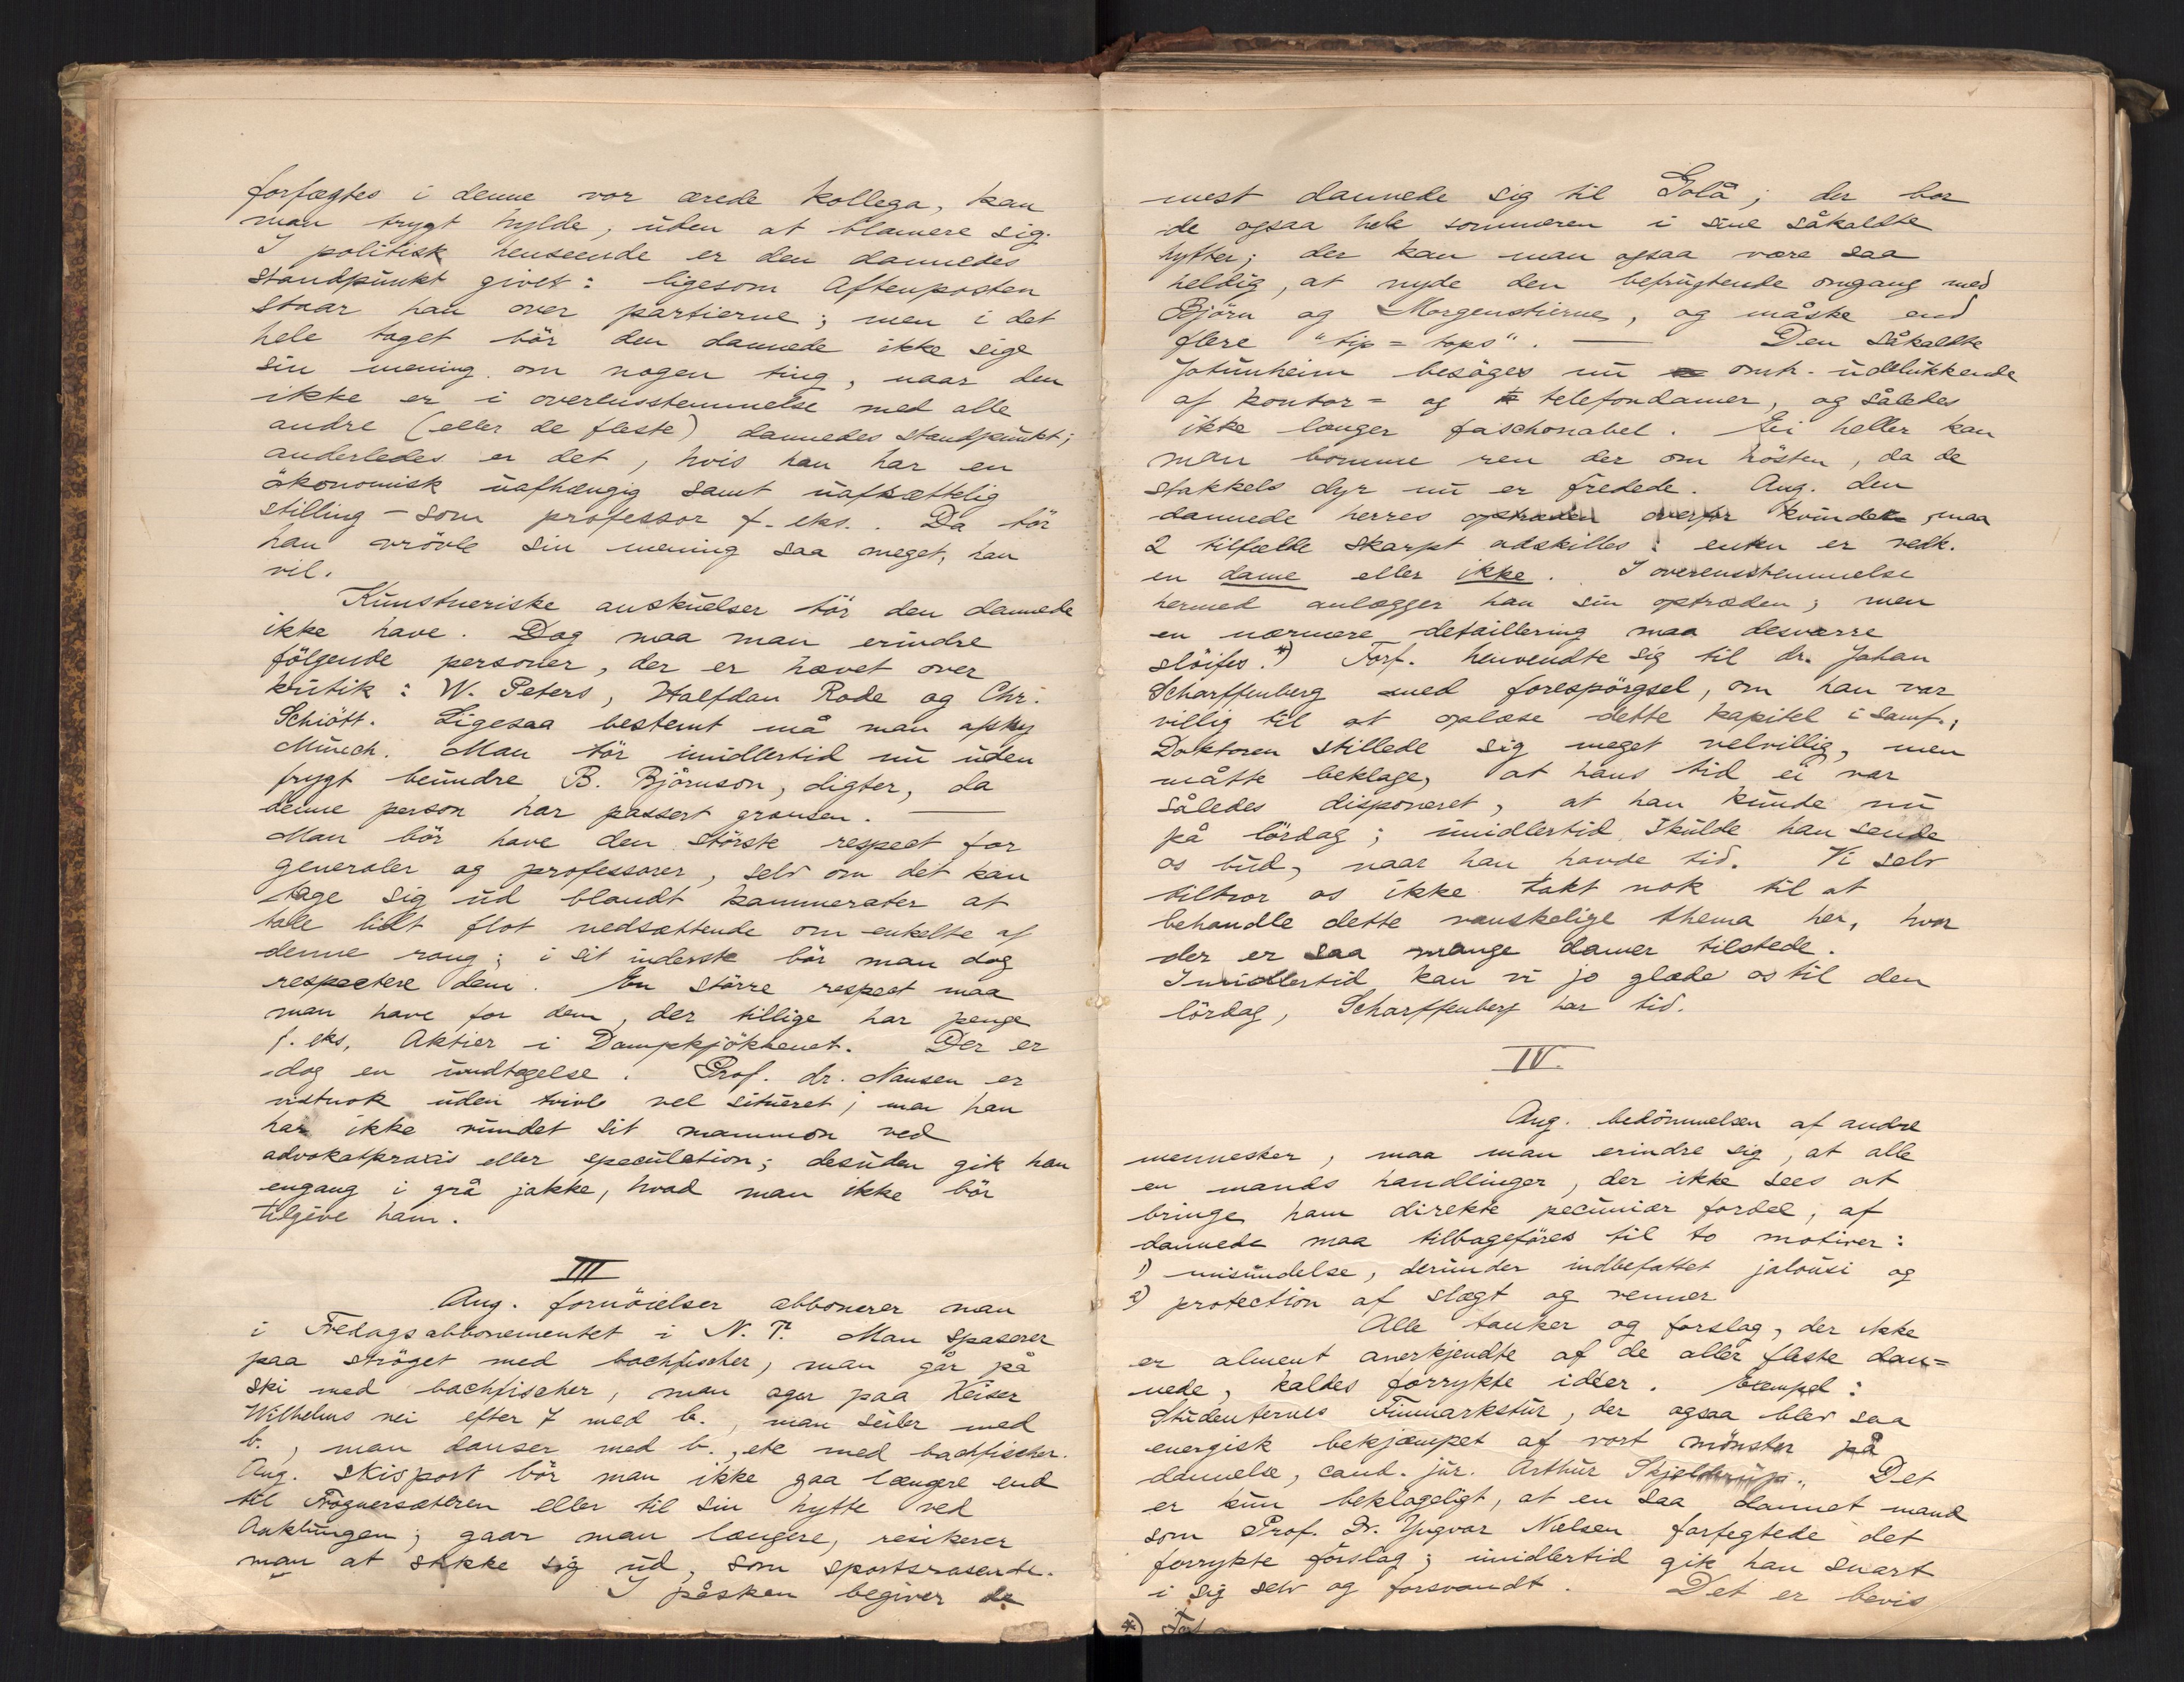 forfægtes i denne vor ærede kollega, kan
man trygt hylde, uden at blamere sig.
I politisk henseende er den dannedes
standpunkt givet: ligesom Aftenposten
staar han over partierne; men i det
hele taget bör den dannede ikke sige
sin mening om nogen ting, naar den
ikke er i overensstemmelse med alle
andre (eller de fleste) dannedes standpunkt;
anderledes er det, hvis han har en
ökonomisk uafhængig samt uafsættelig
stilling – som professor f. eks.. Da tör
han vrövle sin mening saa meget, han
vil.
Kunstneriske anskuelser tör den dannede
ikke have. Dog maa man erindre
fölgende personer, der er hævet over
kritik: W. Peters, Halfdan Rode og Chr.
Schiött. Ligesaa bestemt må man afsky
Munch. Man tör imidlertid nu uden
frygt beundre B. Björnson, digter, da
denne person har passert grænsen. —
Man bör have den störste respect for
generaler og professorer, selv om det kan
tage sig ud blandt kammerater at
tale lidt flot nedsættende om enkelte af
denne rang; i sit inderste bör man dog
respectere dem. En större respect maa
man have for dem, der tillige har penge
f. eks. Aktier i Dampkjökkenet. Der er
dog en undtagelse. Prof. dr. Nansen er
vistnok uden tvivl vel situeret; men han
har ikke vundet sit mammon ved
advokatpraxis eller speculation; desuden gik han
engang i grå jakke, hvad man ikke bör
tilgive ham.
III
Ang. fornöielser abbonerer man
i Fredagsabbonementet i N. T. Man spaserer
paa ströget med bachfischer, man går på
ski med bachfischer, man ager paa Keiser
Wilhelms vei efter 7 med b., man seiler med
b., man danser med b., etc med bachfischer.
Ang. skisport bör man ikke gaa længere end
til Frognersæteren eller til sin hytte ved
gaar man længere, resikerer
man at stikke sig ud, som sportsrasende.
I påsken begiver de
mest dannede sig til Golå; der bor
de ogsaa hele sommeren i sine såkaldte
hytter; der kan man ogsaa være saa
heldig, at nyde den befrugtende omgang med
Björn og Morgenstierne, og måske end
flere "tip=tops". — Den såkaldte
Jotunheim besöges nu omtr. udelukkende
af kontor= og telefondamer, og således
ikke længer faschonabel. Ei heller kan
man bomme ren der om hösten, da de
stakkels dyr nu er fredede. Ang. den
dannede herres optræden overfor kvinder, maa
2 tilfælde skarpt adskilles: enten er vedk.
en dame eller ikke. I overensstemmelse
hermed anlægger han sin optræden; men
en nærmere detaillering maa desværre
slöifes.*) Forf. henvendte sig til dr. Johan
Scharffenberg med forespörgsel, om han var
villig til at oplæse dette kapitel i samf.;
Doktoren stillede sig meget velvillig, men
måtte beklage, at hans tid ei var
således disponeret, at han kunde nu
på lördag; imidlertid skulde han sende
os bud, naar han havde tid. Vi selv
tiltror os ikke takt nok til at
behandle dette vanskelige thema her, hvor
der er saa mange damer tilstede.
Imidlertid kan vi jo glæde os til den
lördag, Scharffenberg har tid.
IV.
Ang. bedömmelsen af andre
mennesker, maa man erindre sig, at alle
en mands handlinger, der ikke sees at
bringe ham direkte pecuniær fordel, af
dannede maa tilbageföres til to motiver:
1) misundelse, derunder indbefattet jalousi og
2) protection af slægt og venner
Alle tanker og forslag, der ikke
er alment anerkjendte af de aller fleste dan=
nede, kaldes forrykte ideer. Exempel:
Studenternes Finmarkstur, der ogsaa blev saa
energisk bekjæmpet af vort mönster på
dannelse, cand. jur. Arthur Skjelderup. Det
er kun beklageligt, at en saa dannet mand
som Prof. Dr. Yngvar Nielsen forfegtede det
forrykte forslag; imidlertid gik han snart
i sig selv og forsvandt. Det er bevis
*)